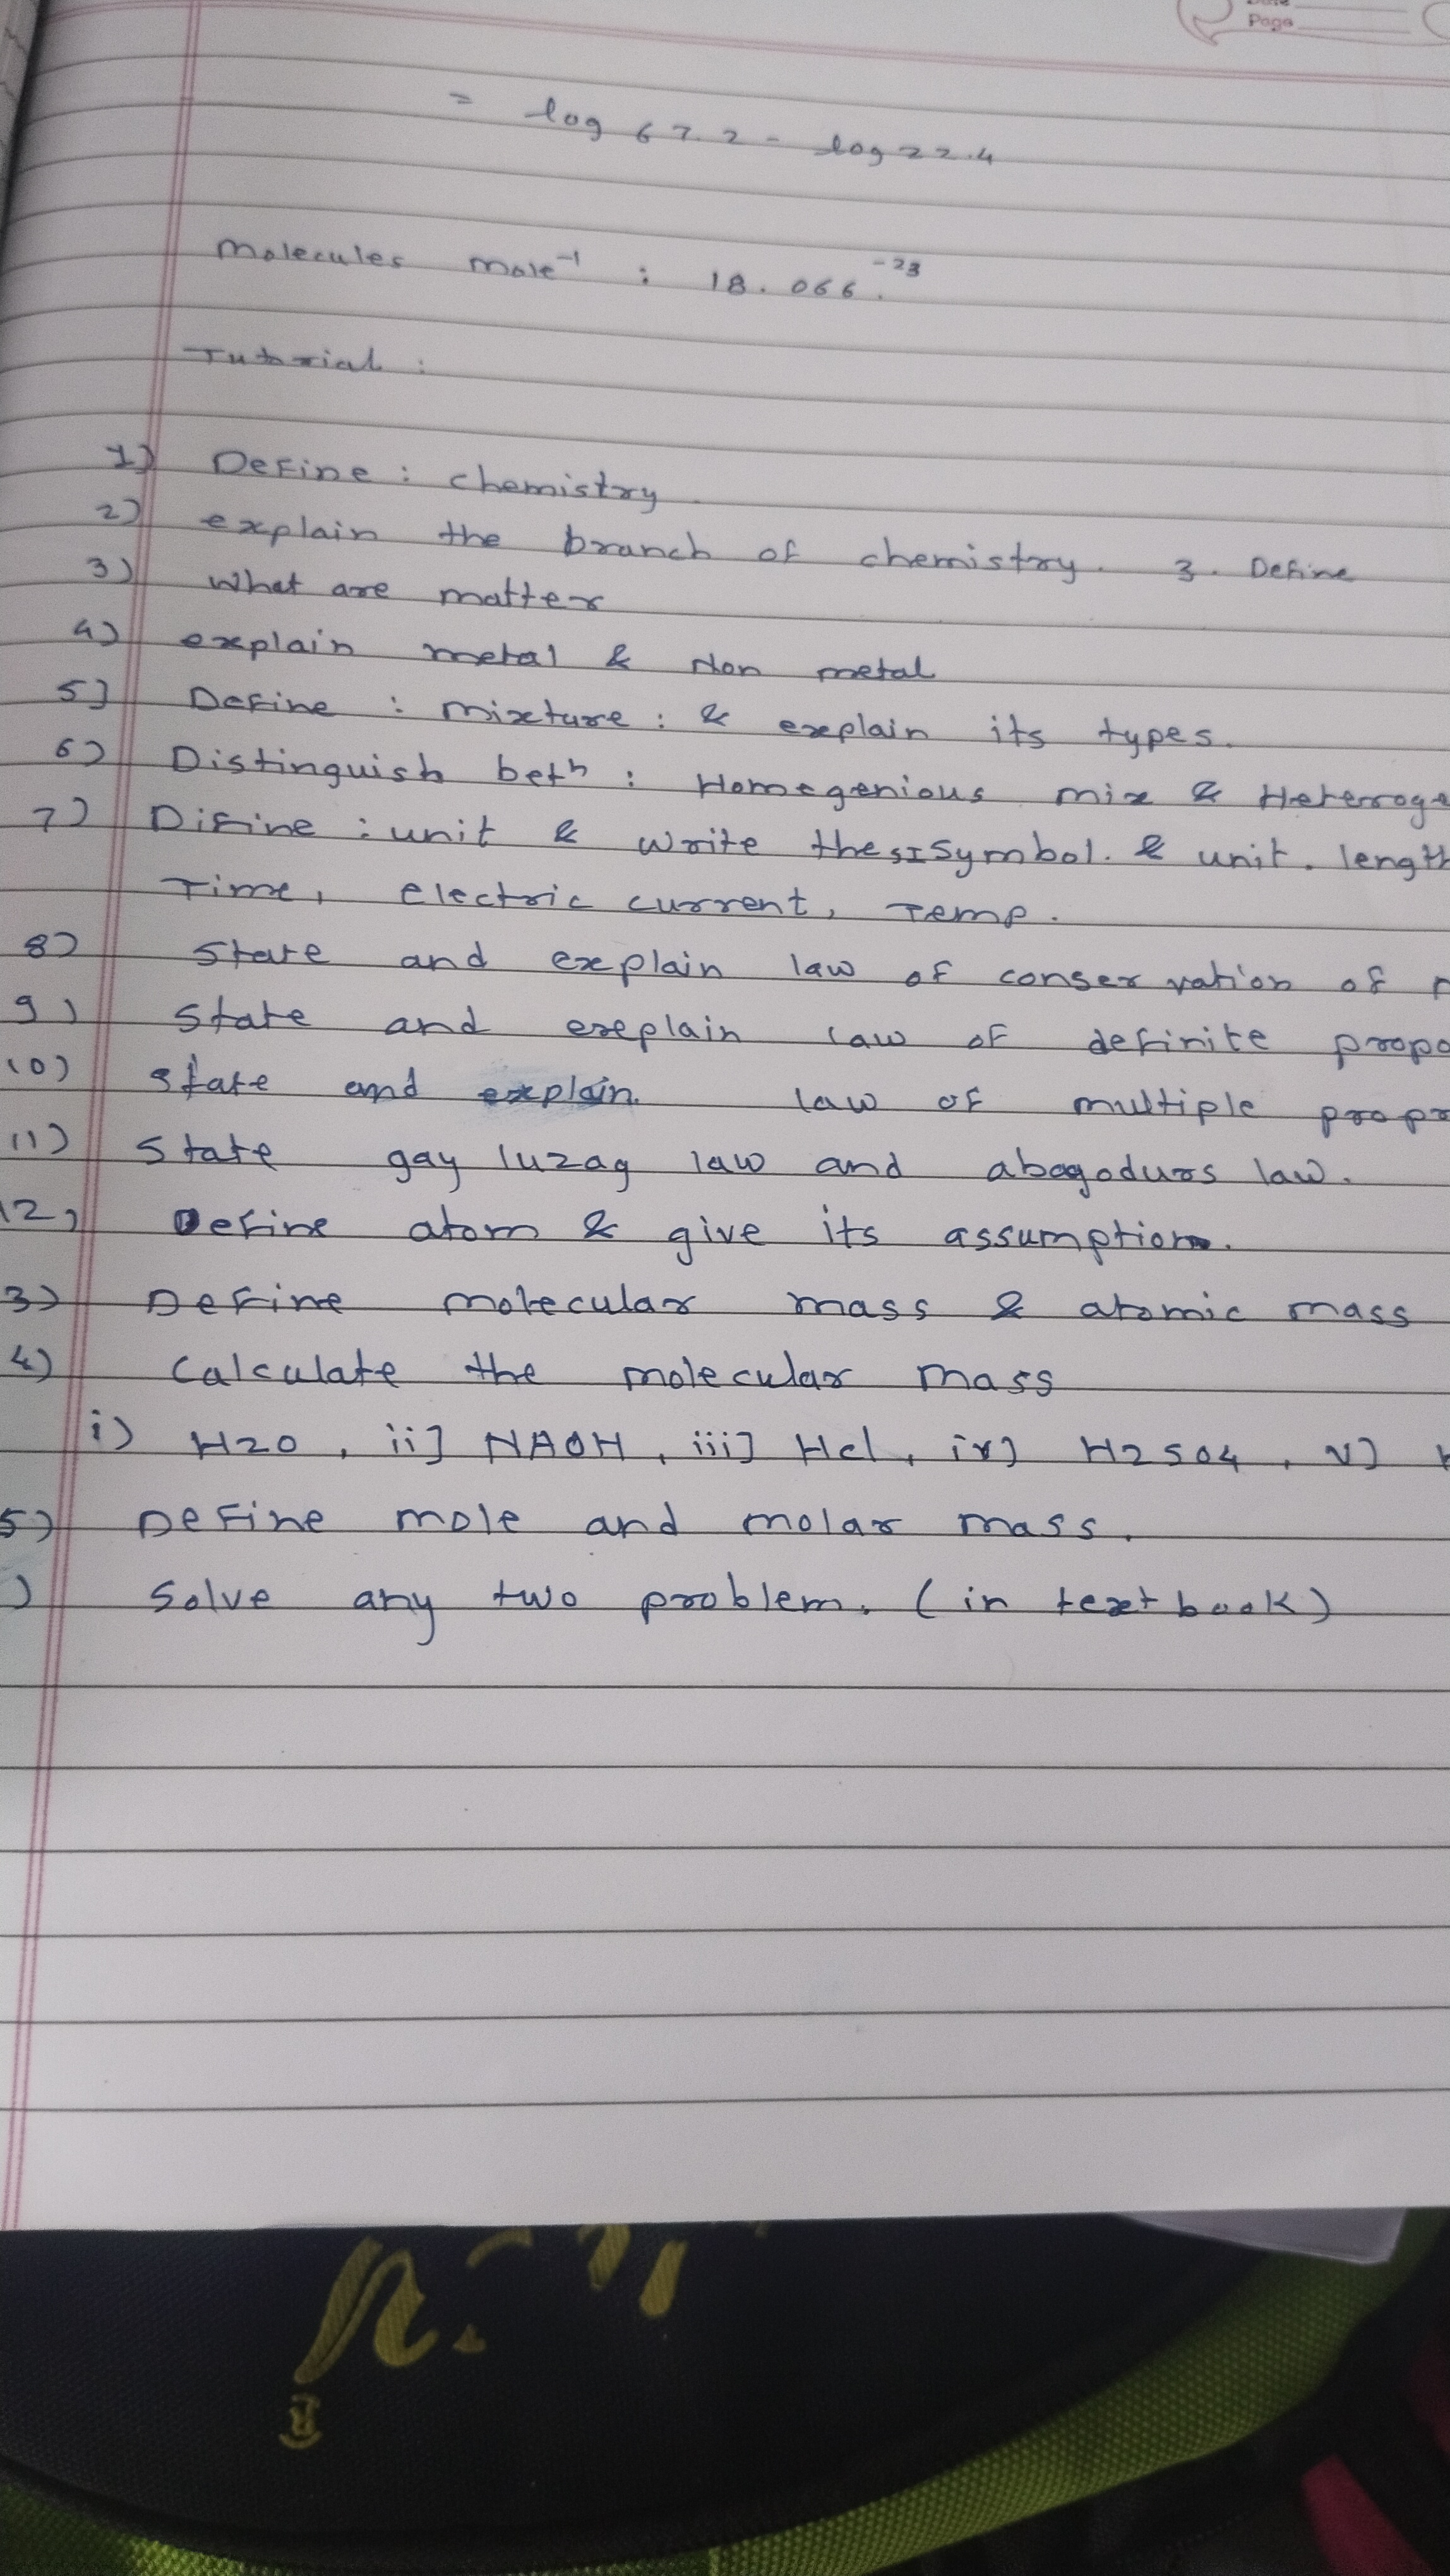 Page
= log 67.2 - log 22.4
Molecules mole⁻¹ : 18.066.⁻²³
Tutorial :
1) Define : chemistry.
2) explain the branch of chemistry. 3. Define
3) What are matter
4) explain metal & Non metal
5] Define : mixture : & explain its types.
6) Distinguish betⁿ : Homogenious mix & Heterroge
7) Difine : unit & write the SI Symbol. & unit. length
Time, electric current, Temp.
8) State and explain law of conservation of
9) State and exeplain law of definite propo
10) State and explain law of multiple propo
11) State gay luzag law and abagodurs law.
12) Define atom & give its assumption.
3) Define molecular mass & atomic mass
4) Calculate the molecular mass
i) H2O, ii] NAOH, iii] Hcl, iv] H2SO4, v]
5) Define mole and molar mass.
) Solve any two problem. (in text book)